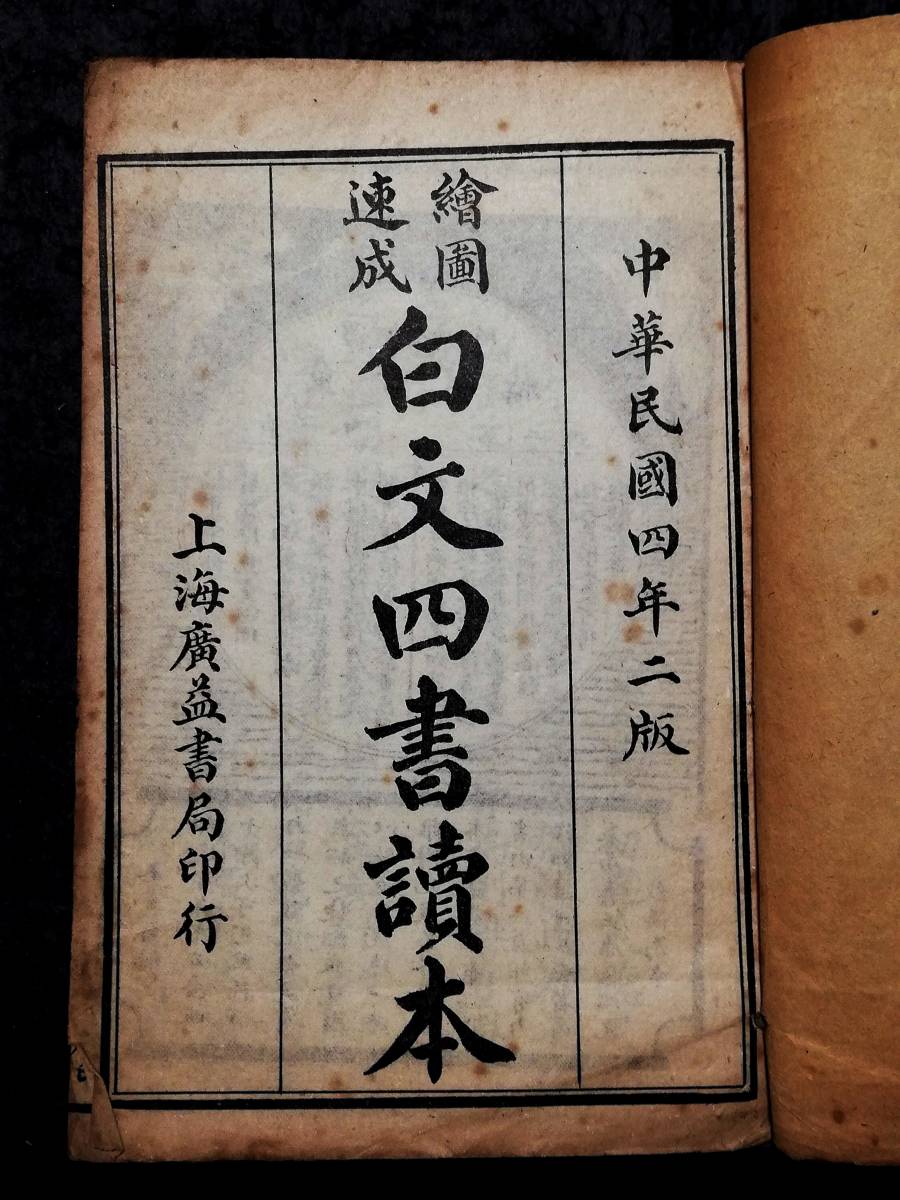 中華民國四年二版
繪圖
速成
白文四書讀本
上海廣益書局印行